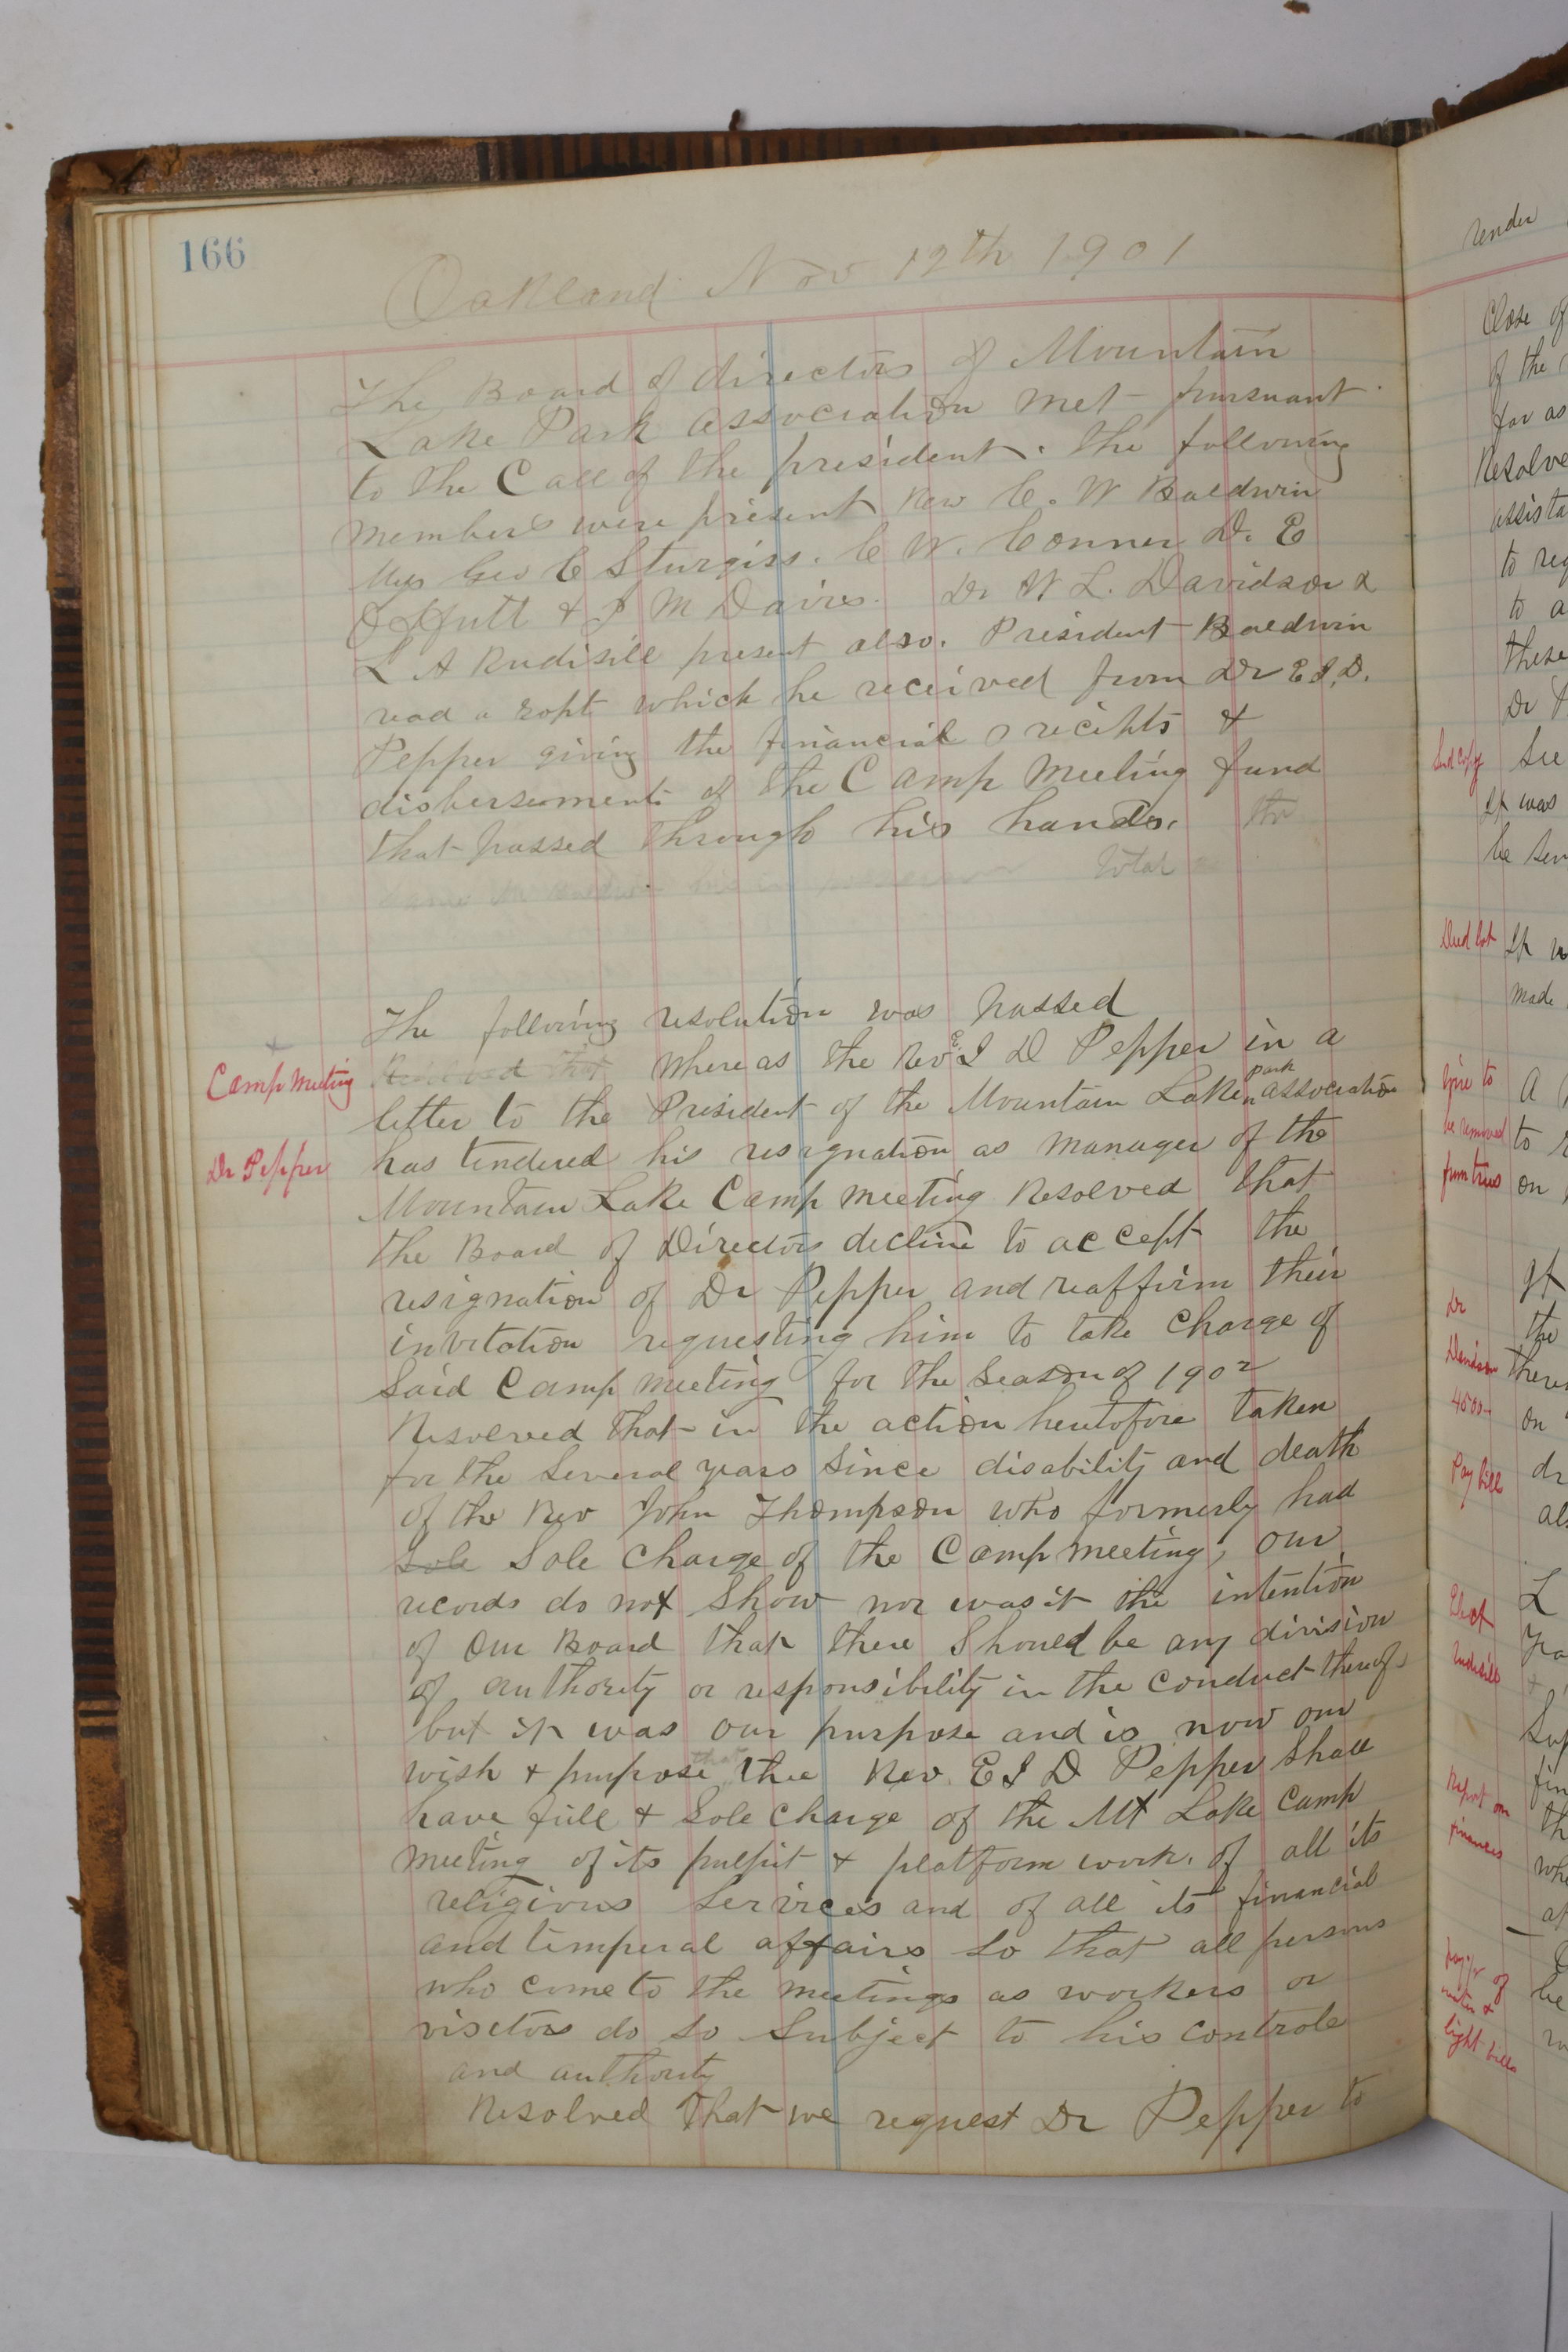 166
Oakland Nov 12th 1901
The Board of directors of Mountain
Lake Park association met pursuant
to the Call of the president. the following
members were present Rev C. W Baldwin
Geo C Sturgiss. C W. Conner D. E
Offutt & J M Davis. Dr W L. Davidson &
L A Rudisill present also. President Baldwin
read a ropt which he received from Dr E I. D.
Pepper giving the financial reciepts &
disbersements of the Camp Meeting fund
that passed through his hands. the
total
The following resolution was passed
Camp Meeting
Resolved that Whereas the Rev E. I D Pepper in a
letter to the President of the Mountain Lake park association
Dr Pepper
has tendered his resignation as manager of the
Mountain Lake Camp meeting Resolved that
the Board of Directors decline to accept the
resignation of Dr Pepper and reaffirm their
invitation requesting him to take charge of
Said Camp meeting for the Season of 1902
Resolved that in the action heretofore taken
for the Several years Since disability and death
of the Rev John Thompson who formerly had
Sole Sole Charge of the Camp meeting, our
records do not Show nor was it the intention
of Our Board that there Should be any division
of authority or responsibility in the conduct thereof
but it was our purpose and is now our
wish & purpose that the Rev. E I D Pepper Shall
have full & Sole Charge of the Mt Lake Camp
Meeting of its pulpit & platform work. of all its
religious Services and of all its financial
and temperal affairs So that all persons
who come to the meetings as workers or
visetors do So Subject to his controle
and authority
Resolved that we request Dr Pepper to
render
Close of
of the
for as
Resolve
assista
to req
to a
these
Dr P
See
It was
be sen
Deed lot
It w
made
Wire to
be removed
from trees
a
to
on
Dr
Davidson
4500
the
there
on
Pay bill
dr
al
Elect
Rudisill
L
Report on
finances
fin
th
whe
at
water &
light bills
be